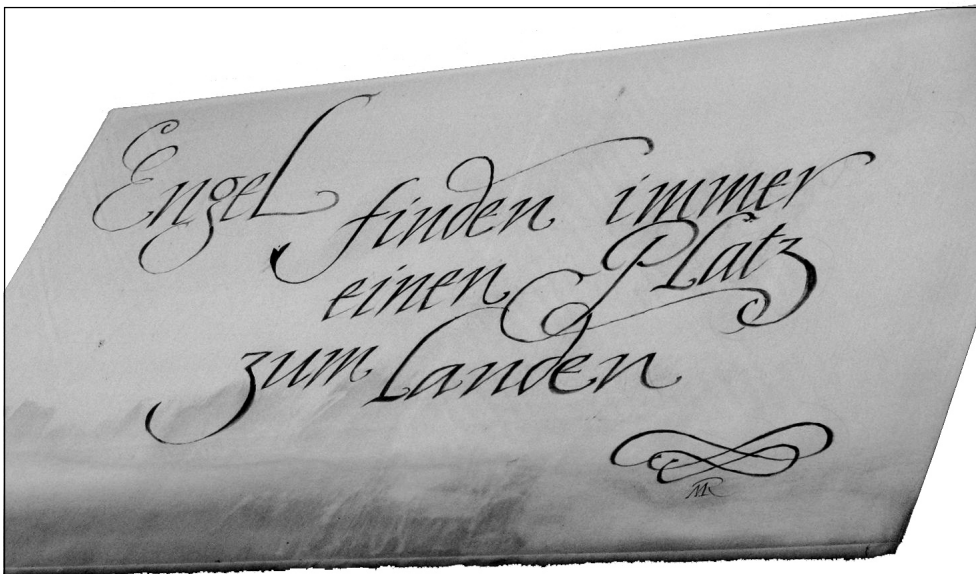 Engel finden immer
einen Platz
zum landen
MR